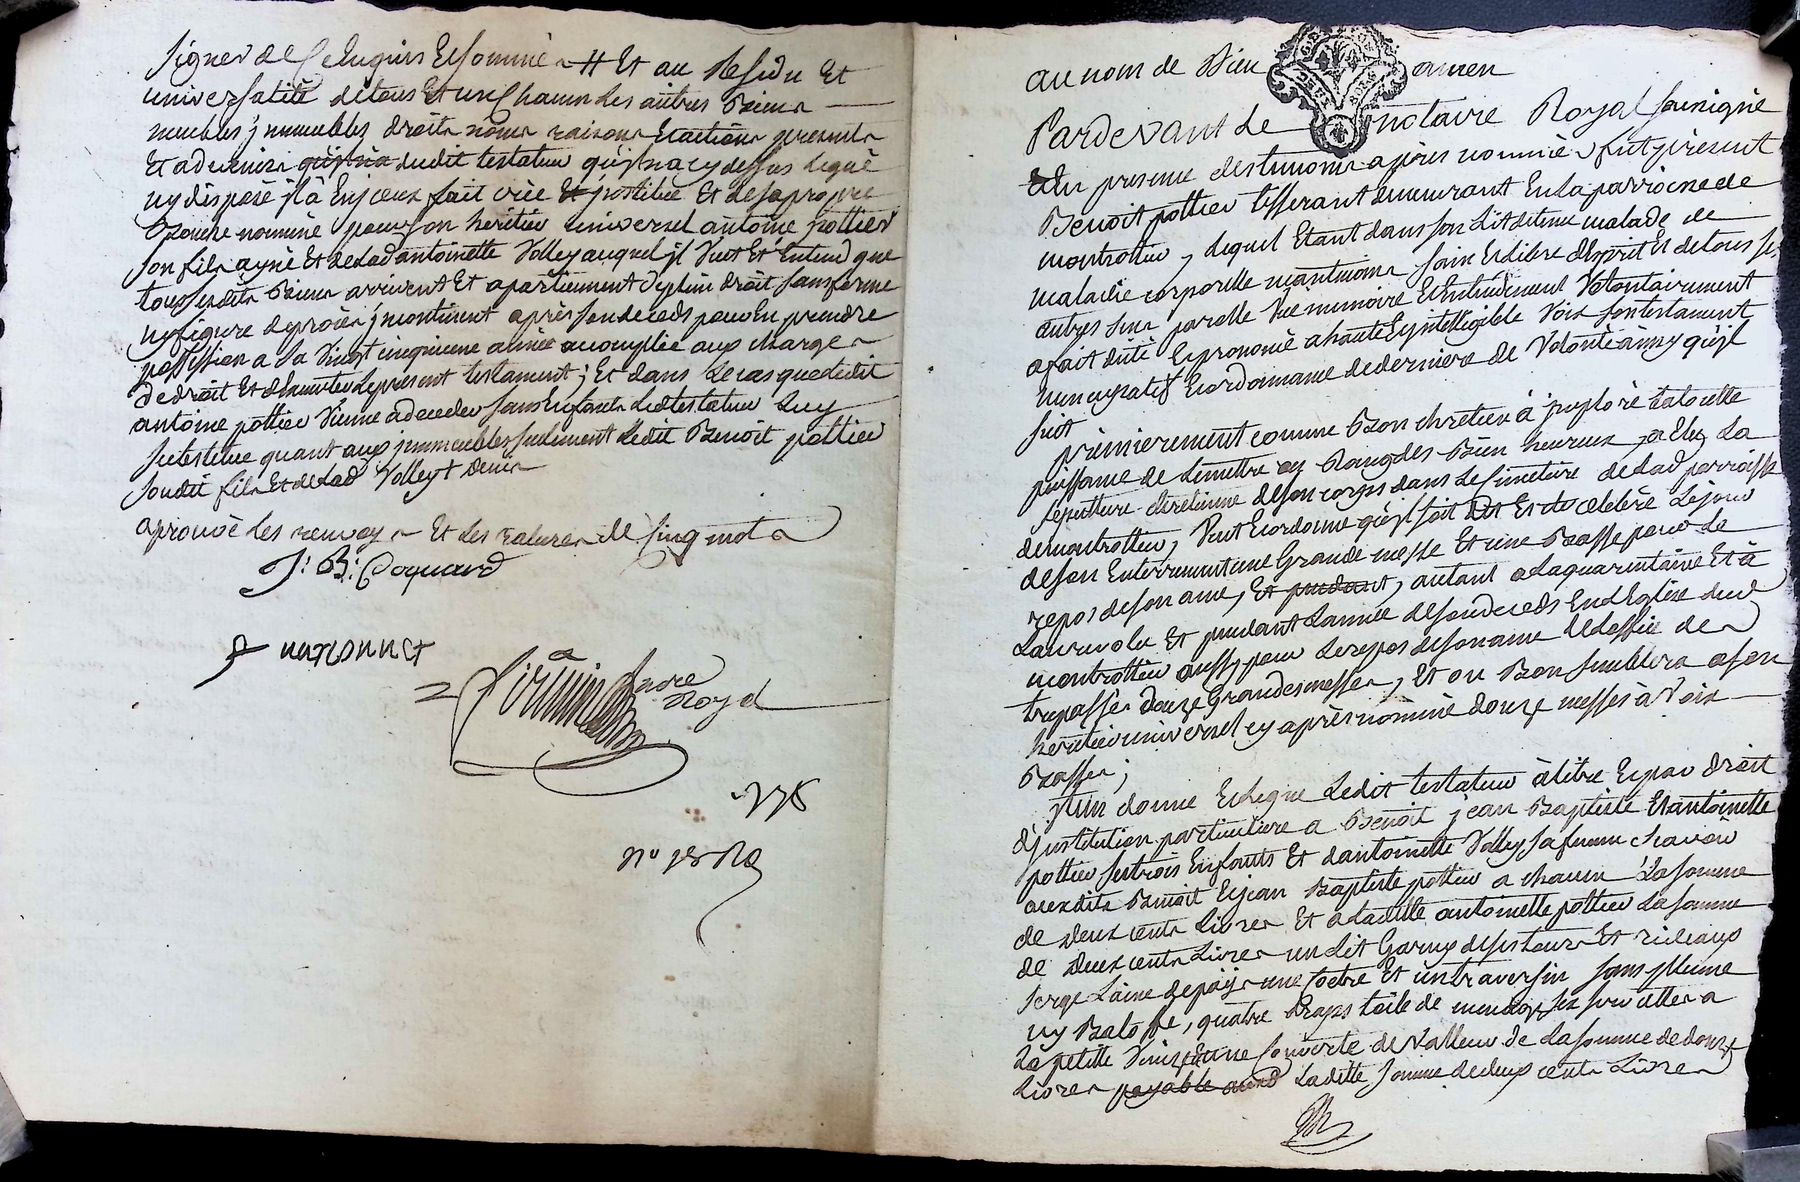 signer de ce enquis Et sommé # Et au Residu Et
universalité de tous Et un Chacun Les autres Biens
meubles jmmeubles droits noms raisons Et actions presents
Et advenir dudit testateur qu'jl n'a cy dessus legué
ny disposé jl à En jceux fait crée Et jnstitué Et de sa propre
Bouche nommé pour son heritier universel antoine pottier
son fils ayné Et de Lad antoinette Volley auquel jl Veut Et Entend que
tous sesdits Biens arrivent Et apartiennent de plein droit sans forme
ny figure de procès jncontinent après son deceds pour En prendre
possession a sa Vingt cinquieme année accomplie aux charges
de droit Et d'Executer Le present testament ; Et dans Le cas que dedit
antoine pottier Vienne a deceder sans Enfants Ledit testateur Luy
substitue quant aux jmmeubles seulement Ledit Benoit pottier
son dit fils Et de Lad Volley +
aprouvé Les renvoys Et Les ratures de cinq mots
J: B: Coquard
Nore
Royal
au nom de Dieu amen
Pardevant Le notaire Royal sousigné
En presence des temoins après nommés fut present
Benoit pottier tisserant demeurant En La parroisse de
montrottier, Lequel Etant dans son Lit detenu malade de
maladie corporelle neantmoins sain Et Libre d'Esprit Et de tous ses
autres sens parolle Vue memoire Et Entendement Volontairement
a fait dicté Et prononcé a haute Et jntelligible Voix son testament
nuncupatif Et ordonnance de derniere de Volonté ainsy qu'jl
suit
premierement comme Bon chretien à jmploré La toutte
puissance de Le mettre au Rang des Bien heureux, a Elu La
sepulture chretienne de son corps dans Le simetiere de Lad parroisse
de montrottier, Veut Et ordonne qu'jl soit dit Et celebré Le jour
de son Enterrement une Grande messe Et une Basse pour Le
repos de son ame, Et pendant, autant a La quarantaine Et à
La revolu Et pendant L'année de son deceds En L'Eglise dud
montrottier aussy pour Le repos de son ame
trepassés douze Grandes messes, Et ou Bon semblera a son
heritier universel cy après nommé douze messes à Voix
Basse ;
jtem donne Et Legue Ledit testateur à titre Et par droit
d'jnstitution particuliere a Benoit jean Baptiste Et antoinette
pottier ses trois Enfants Et d'antoinette Volley sa femme sçavoir
auxdits Benoit Et jean Baptiste pottier a chacun La somme
de deux cents Livres Et a Laditte antoinette pottier La somme
de deux cents Livres un Lit Garny de ses tours Et rideaux
serge Laine de pays une coetre Et un traversin sans plume
ny Baloffe, quatre draps toile de menage
La petite Venise Et une couverte de Valleur de La somme de douze
Livres payable Laditte somme de deux cents Livres